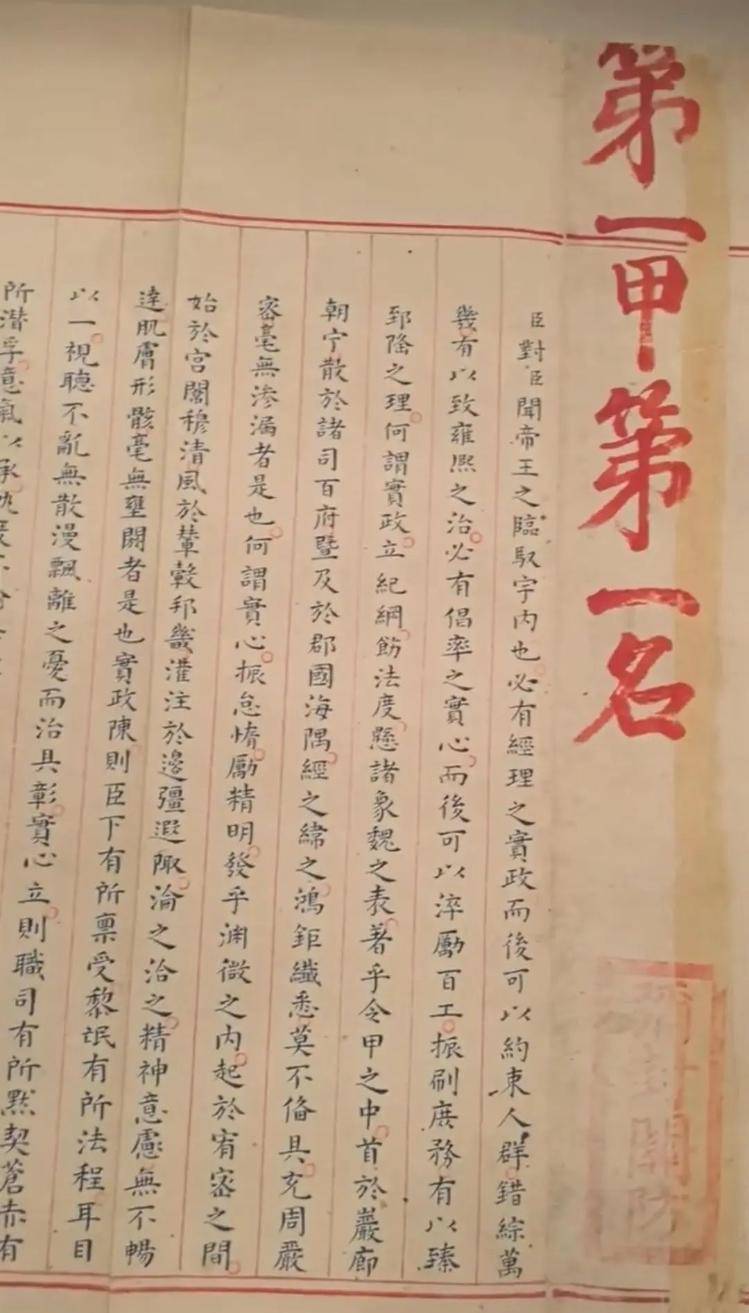 第一甲第一名
臣對臣聞帝王之臨馭宇內也必有經理之實政而後可以約束人群錯綜萬
幾有以致雍熙之治必有倡率之實心而後可以淬勵百工振刷庶務有以臻
郅隆之理何謂實政立紀綱飭法度懸諸象魏之表著乎令甲之中首於巖廊
朝宁散於諸司百府暨及於郡國海隅經之緯之鴻鉅纖悉莫不俻具充周嚴
密毫無滲漏者是也何謂實心振怠惰勵精明發乎淵微之內起於宥密之間
始於宮闈穆清風於輦轂邦畿灌注於邊疆遐陬淪之洽之精神意慮無不暢
達肌膚形骸毫無壅閼者是也實政陳則臣下有所禀受黎氓有所法程耳目
以一視聽不亂無散漫飄離之憂而治具彰實心立則職司有所默契蒼赤有
所潛孚意氣以承
關防